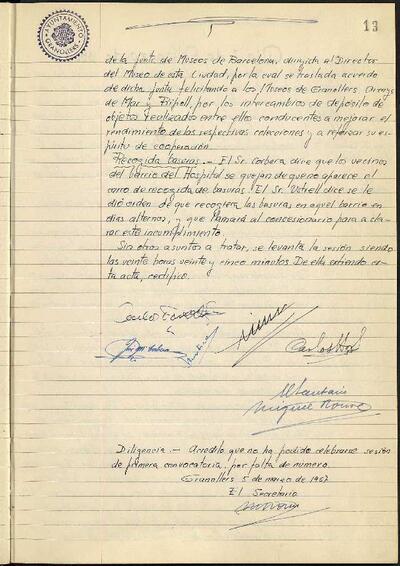 13
AYUNTAMIENTO
GRANOLLERS
de la Junta de Museos de Barcelona, dirigida al Director
del Museo de esta Ciudad, por la cual se traslada acuerdo
de dicha Junta felicitando a los Museos de Granollers Arenys
de Mar y Ripoll, por los intercambios de depósito de
objetos realizados entre ellos conducentes a mejorar el
rendimiento de las respectivas colecciones y a reforzar su es-
píritu de cooperación.
Recogida basuras.- El Sr. Corbera dice que los vecinos
del barrio del Hospital se quejan de que no aparece el
carro de recogida de basuras. El Sr. Vetrell dice se le
dió orden de que recogiera las basuras en aquel barrio en
días alternos, y que llamará al concesionario para acla-
rar este incumplimiento.
Sin otros asuntos a tratar, se levanta la sesión siendo
las veinte horas veinte y cinco minutos. De ella extiendo es-
ta acta, certifico.
Carlos
Miguel
Diligencia.- Acredito que no ha podido celebrarse sesión
de primera convocatoria, por falta de número.
Granollers 5 de marzo de 1957
El Secretario